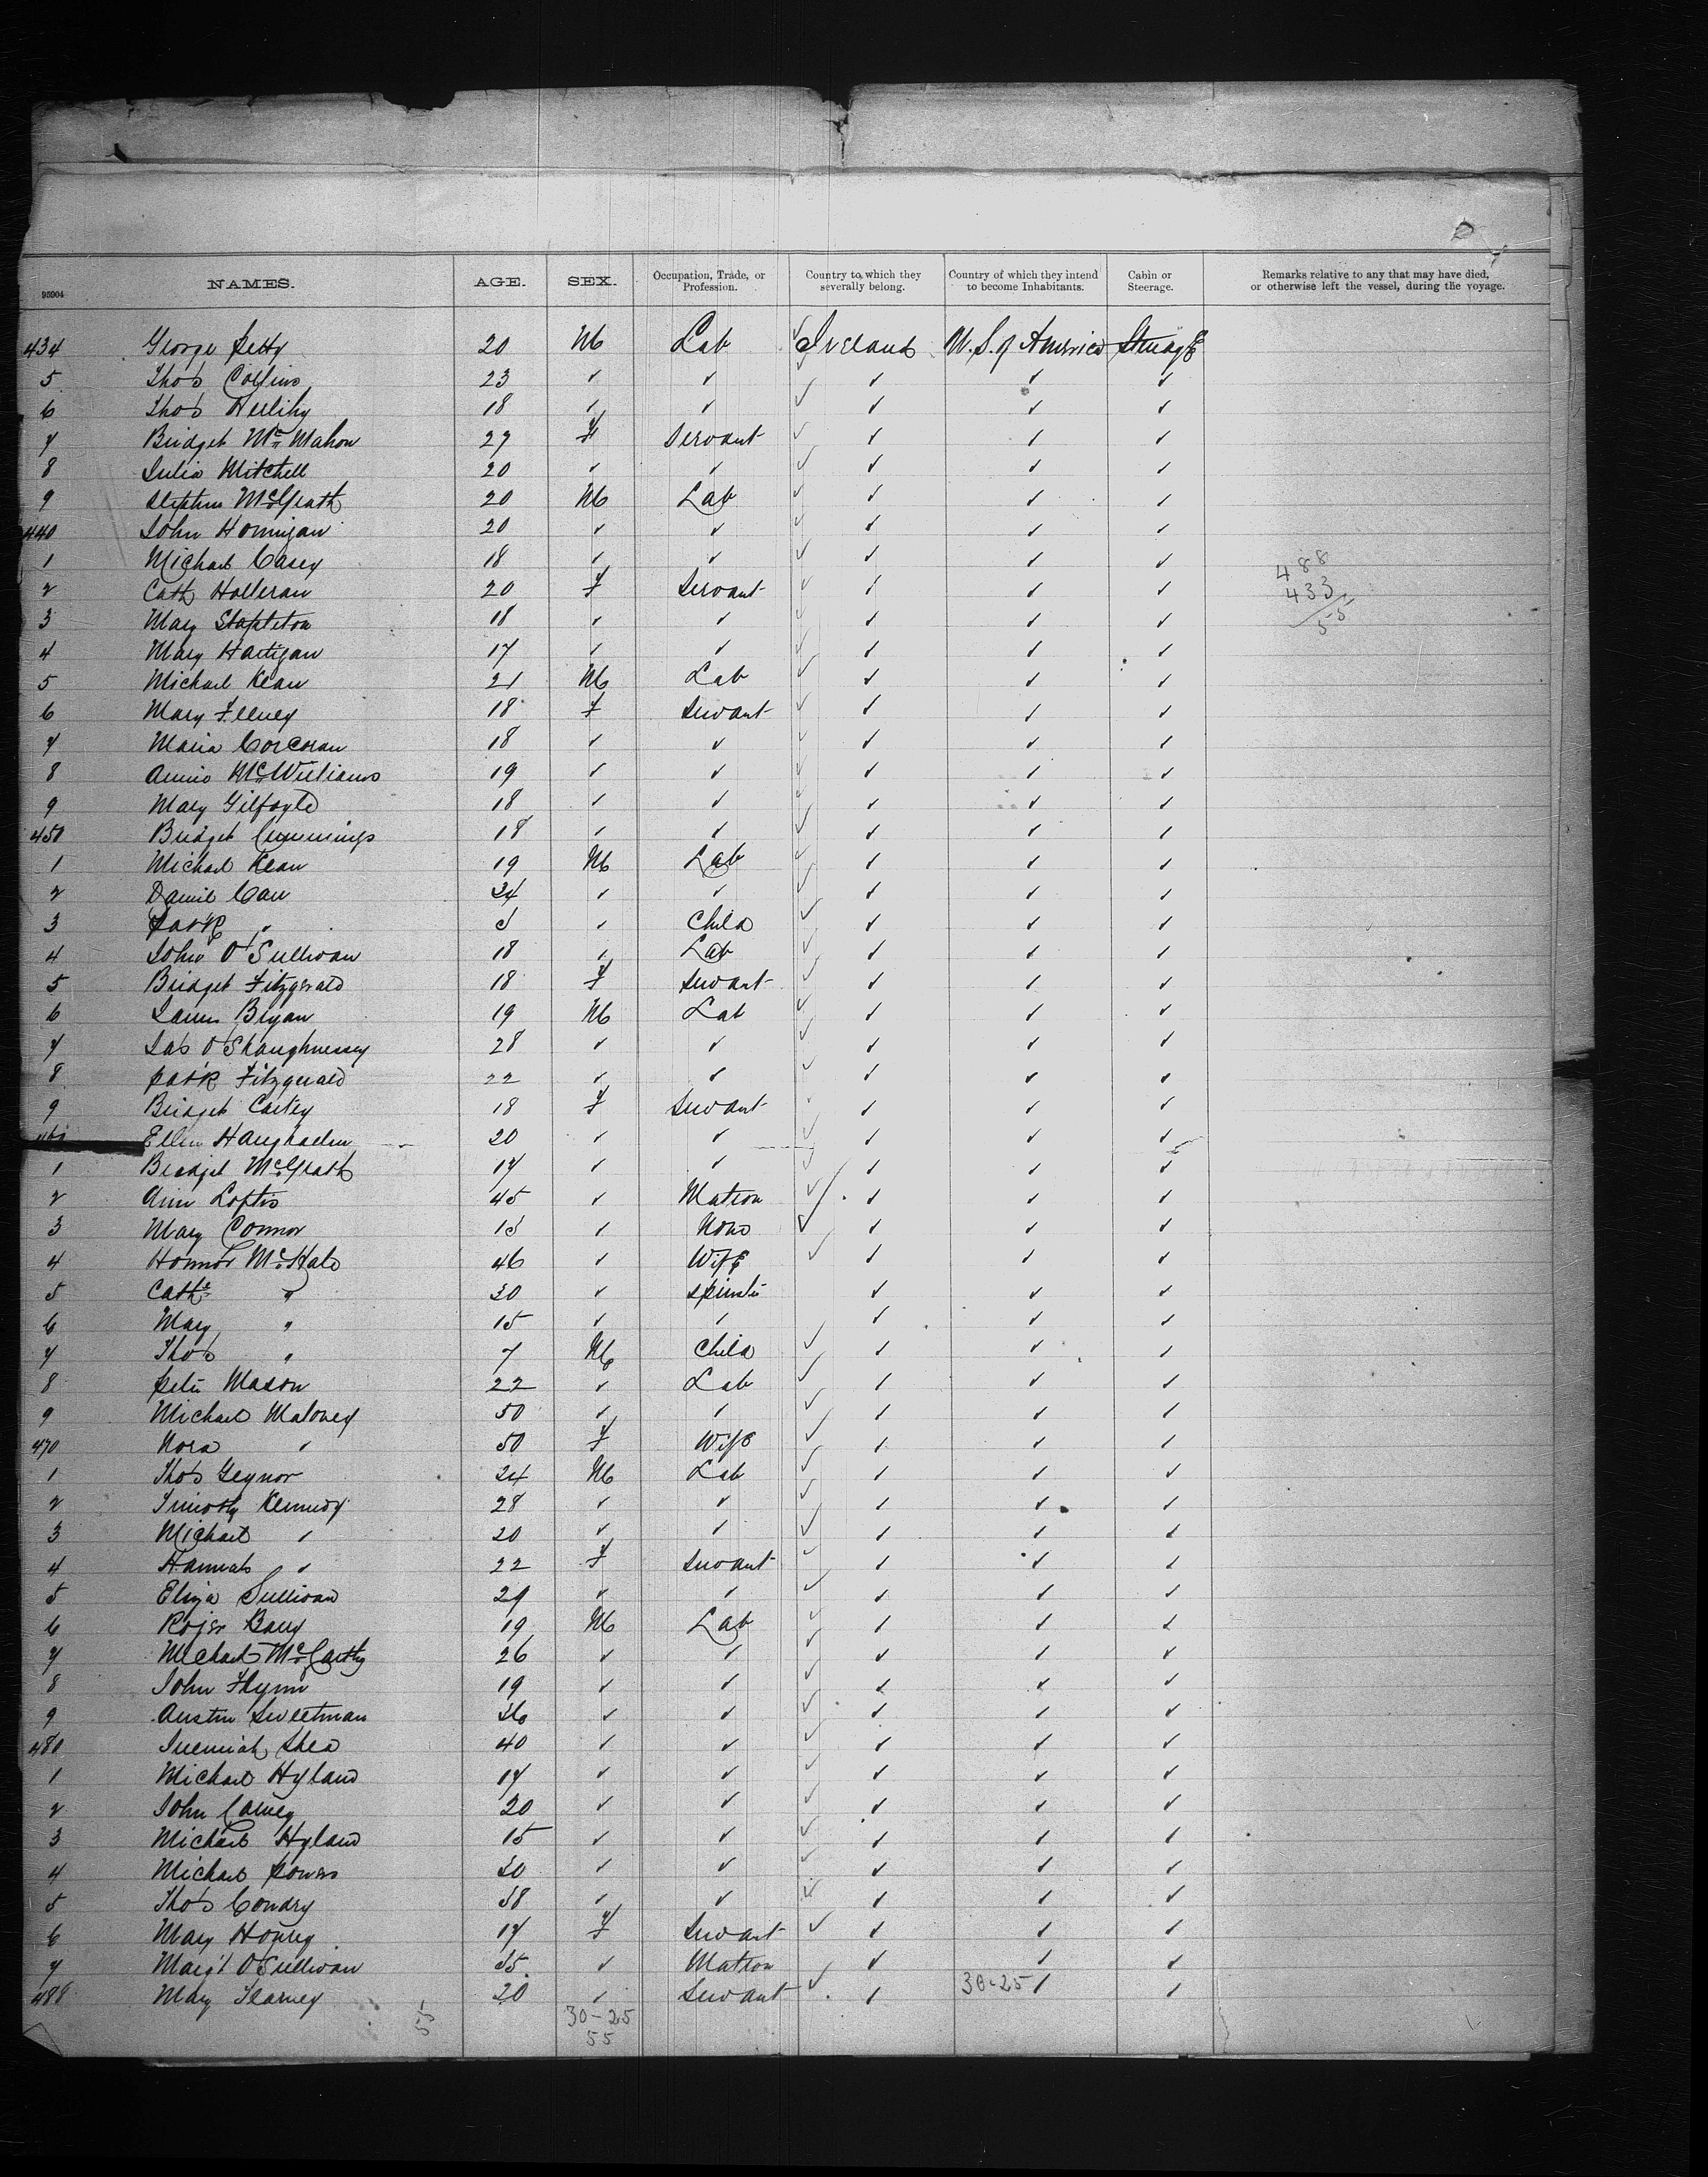 NAMES. AGE. SEX. Occupation, Trade, or Profession. Country to which they severally belong. Country of which they intend to become Inhabitants. Cabin or Steerage. Remarks relative to any that may have died, or otherwise left the vessel, during the voyage.
95904
434 George Petty 20 M Lab Ireland U.S. of America Steerage
5 Thos Collins 23 ✓ ✓ ✓ ✓ ✓
6 Thos Herlihy 18 ✓ ✓ ✓ ✓ ✓
7 Bridget Mc Mahon 27 F Servant ✓ ✓ ✓
8 Julia Mitchell 20 ✓ ✓ ✓ ✓ ✓
9 Stephen McGrath 20 M Lab ✓ ✓ ✓
440 John Hannigan 20 ✓ ✓ ✓ ✓ ✓
1 Michael Casey 18 ✓ ✓ ✓ ✓ ✓ 488
2 Cath Holleran 20 F Servant ✓ ✓ ✓ 433
3 Mary Stapleton 18 ✓ ✓ ✓ ✓ ✓ 55
4 Mary Hartigan 17 ✓ ✓ ✓ ✓ ✓
5 Michael Kean 21 M Lab ✓ ✓ ✓
6 Mary Feeney 18 F Servant ✓ ✓ ✓
7 Maria Corcoran 18 ✓ ✓ ✓ ✓ ✓
8 Annie McWilliams 19 ✓ ✓ ✓ ✓ ✓
9 Mary Gilfoyle 18 ✓ ✓ ✓ ✓ ✓
450 Bridget Cummings 18 ✓ ✓ ✓ ✓ ✓
1 Michael Kean 19 M Lab ✓ ✓ ✓
2 34 ✓ ✓ ✓ ✓ ✓
3 Patk " ✓ Child ✓ ✓ ✓
4 John O'Sullivan 18 ✓ Lab ✓ ✓ ✓
5 Bridget Fitzgerald 18 F Servant ✓ ✓ ✓
6 James Bryan 19 M Lab ✓ ✓ ✓
7 Jas O'Shaughnessy 28 ✓ ✓ ✓ ✓ ✓
8 Patk Fitzgerald 22 ✓ ✓ ✓ ✓ ✓
9 Bridget Carkey 18 F Servant ✓ ✓ ✓
Ellen 20 ✓ ✓ ✓ ✓ ✓
1 Bridget McGrath 17 ✓ ✓ ✓ ✓ ✓
2 Ann Loftis 45 ✓ Matron ✓ ✓ ✓
3 Mary Connor ✓ None ✓ ✓ ✓
4 Honnor McHale 46 ✓ Wife ✓ ✓ ✓
5 Cathe " 30 ✓ Spinster ✓ ✓ ✓
6 Mary " 15 ✓ ✓ ✓ ✓ ✓
7 Thos " 7 M Child ✓ ✓ ✓
8 Peter Mason 22 ✓ Lab ✓ ✓ ✓
9 Michael Maloney 50 ✓ ✓ ✓ ✓ ✓
470 Nora " 50 F Wife ✓ ✓ ✓
1 Thos Geynor 24 M Lab ✓ ✓ ✓
2 Timothy Kennedy 28 ✓ ✓ ✓ ✓ ✓
3 Michael " 20 ✓ ✓ ✓ ✓ ✓
4 Hannah " 22 F Servant ✓ ✓ ✓
5 Eliza Sullivan 29 ✓ ✓ ✓ ✓ ✓
6 Rojer Barry 19 M Lab ✓ ✓ ✓
7 Michael McCarthy 26 ✓ ✓ ✓ ✓ ✓
8 John Flynn 19 ✓ ✓ ✓ ✓ ✓
9 Austin Sweetman 36 ✓ ✓ ✓ ✓ ✓
480 Jeremiah Shea 40 ✓ ✓ ✓ ✓ ✓
1 Michael Hyland 17 ✓ ✓ ✓ ✓ ✓
2 John Carney 20 ✓ ✓ ✓ ✓ ✓
3 Michael Hyland 15 ✓ ✓ ✓ ✓ ✓
4 Michael Powers 30 ✓ ✓ ✓ ✓ ✓
5 Thos Condry 38 ✓ ✓ ✓ ✓ ✓
6 Mary 17 F Servant ✓ ✓ ✓
7 Margt O'Sullivan 35 ✓ Matron ✓ ✓ ✓
488 Mary Kearney 20 ✓ Servant ✓ 30-25 ✓ ✓
55 30-25
55